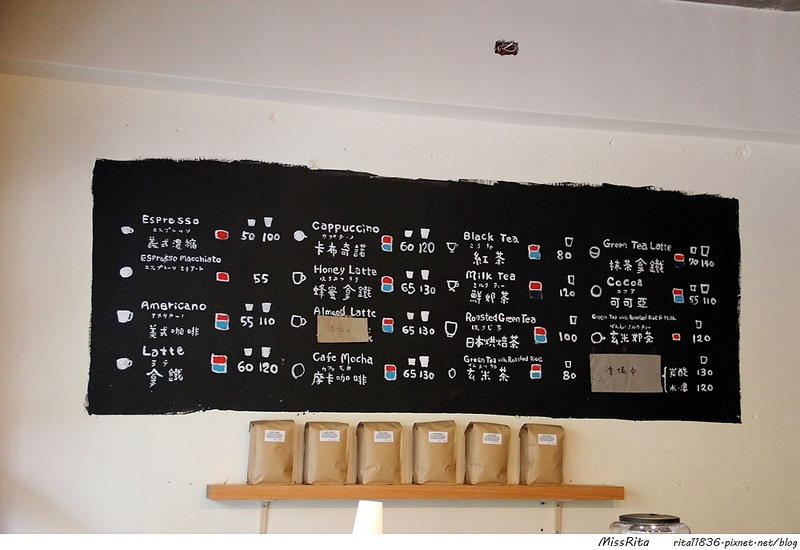 Espresso
エスプレッソ
義式濃縮
50 100
Espresso Macchiato
55
Americano
美式咖啡
55 110
Latte
ラテ
拿鐵
60 120
Cappuccino
カプチーノ
卡布奇諾
60 120
Honey Latte
はちみつラテ
蜂蜜拿鐵
65 130
Almond Latte
準備中
65 130
Cafe Mocha
カフェモカ
摩卡咖啡
65 130
Black Tea
こうちゃ
紅茶
80
Milk Tea
ミルクティー
鮮奶茶
120
Roasted Green Tea
ほうじ茶
日本烘焙茶
100
Green Tea with Roasted Rice
玄米茶
80
Green Tea Latte
抹茶拿鐵
70 140
Cocoa
ココア
可可亞
55 110
Green Tea with Roasted Rice & Milk
げんまいミルクティー
玄米奶茶
120
準備中
岩酸 130
水準 120
MissRita rita11836.pixnet.net/blog